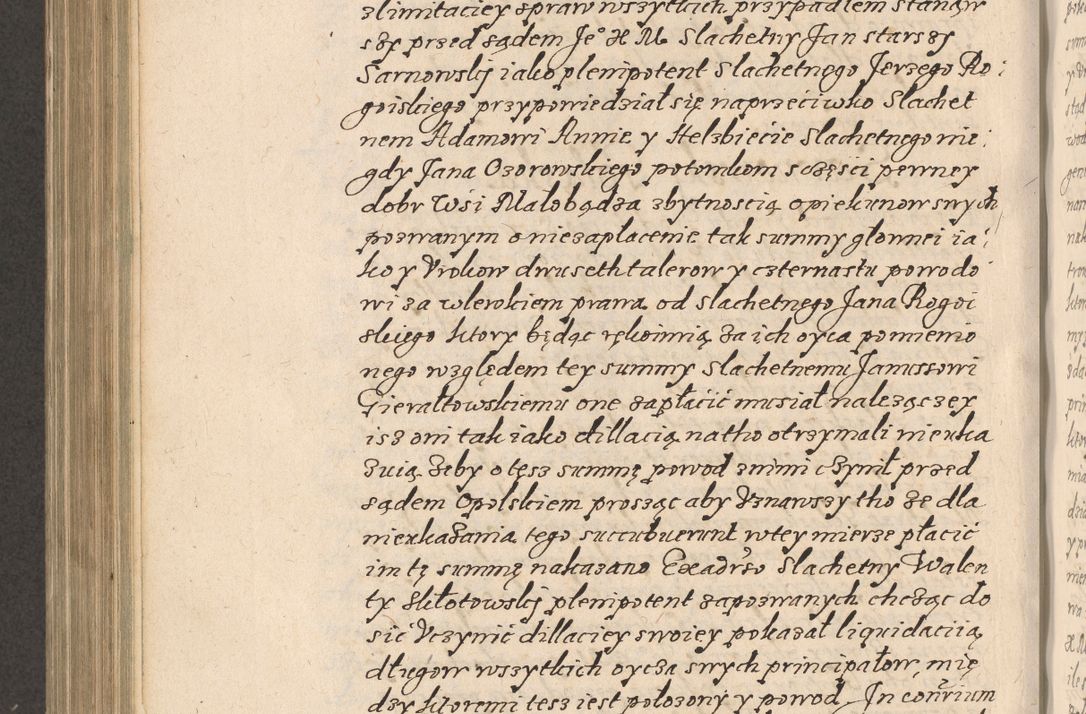 zlimitaciey spraw wszytkich przypadłem stanąw
szy przed sądem Jeº X M Slachetny Jan starszy
Sarnowskij iako plenipotent Slachetnego Jerzego Ro
goiskiego przypowiedział się naprzeciwko Slachet
nem Adamowi Annie y Helzbiecie Slachetnego nie
gdy Jana Ozorowskiego potomkom s częsci pewney
dobr Wsi Małobądza zbytnoscią opiekunow swych
pozwanym o niezapłacenie tak summy głownei ia
ko y Vrokow dwuseth talerow y czternastu powodo
wi za wlewkiem prawa od Slachetnego Jana Rogoi
skiego ktory będąc rękoimią za ich oyca pomienio
nego względem tey summy Slachetnemu Janussowi
Gierałtowskiemu one zapłacić musiał należączey
isz oni tak iako dillacią natho otrzymali nieuka
zuią żeby o tęsz summę powod z nimi czynił przed
sądem Opolskiem prosząc aby Vznawszy tho że dla
nieukazania tego succubuerunt wtey mierze płacić
im tę summę nakazano Exadrso Slachetny Walen
ty Skłotowskij plenipotent zapozwanych chcząc do
sić Vczynić dillaciey swoiey pokazał liquidaciią
długow wszytkich oycza swych principałow, mię
dzy ktoremi tesz iest położony y powod In conrium